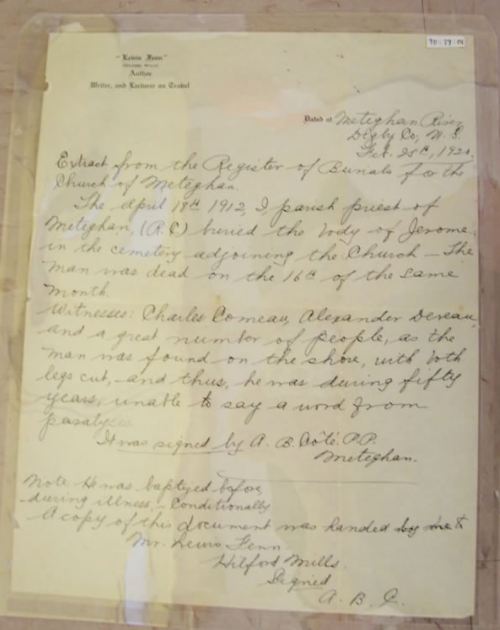 "Lewis Fenn"
Author
Writer, and Lecturer on Travel
Dated at Meteghan River
Digby Co, N. S.
Feb. 25th, 192
Extract from the Register of Burials for the
Church of Meteghan.
The April 18th 1912, I, parish priest of
Meteghan, (R.C) buried the body of Jerome,
in the cemetery adjoining the Church - The
man was dead on the 16th of the same
month.
Witnesses: Charles Comeau, Alexander Deveau,
and a great number of people, as the
man was found on the shore, with both
legs cut, - and thus, he was during fifty
years, unable to say a word from
paralyses.
It was signed by A. B. Côté. P.P.
Meteghan.
Note. He was baptyzed before,
during illness, - Conditionally
A copy of this document was handed by me to
Mr. Lewis Fenn
Hilford Mills.
Signed
A. B. C.